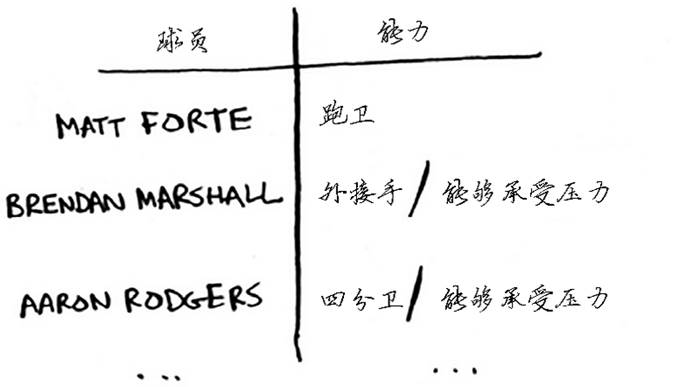 球员 能力
MATT FORTE 跑卫
BRENDAN MARSHALL 外接手 / 能够承受压力
AARON RODGERS 四分卫 / 能够承受压力
... ...